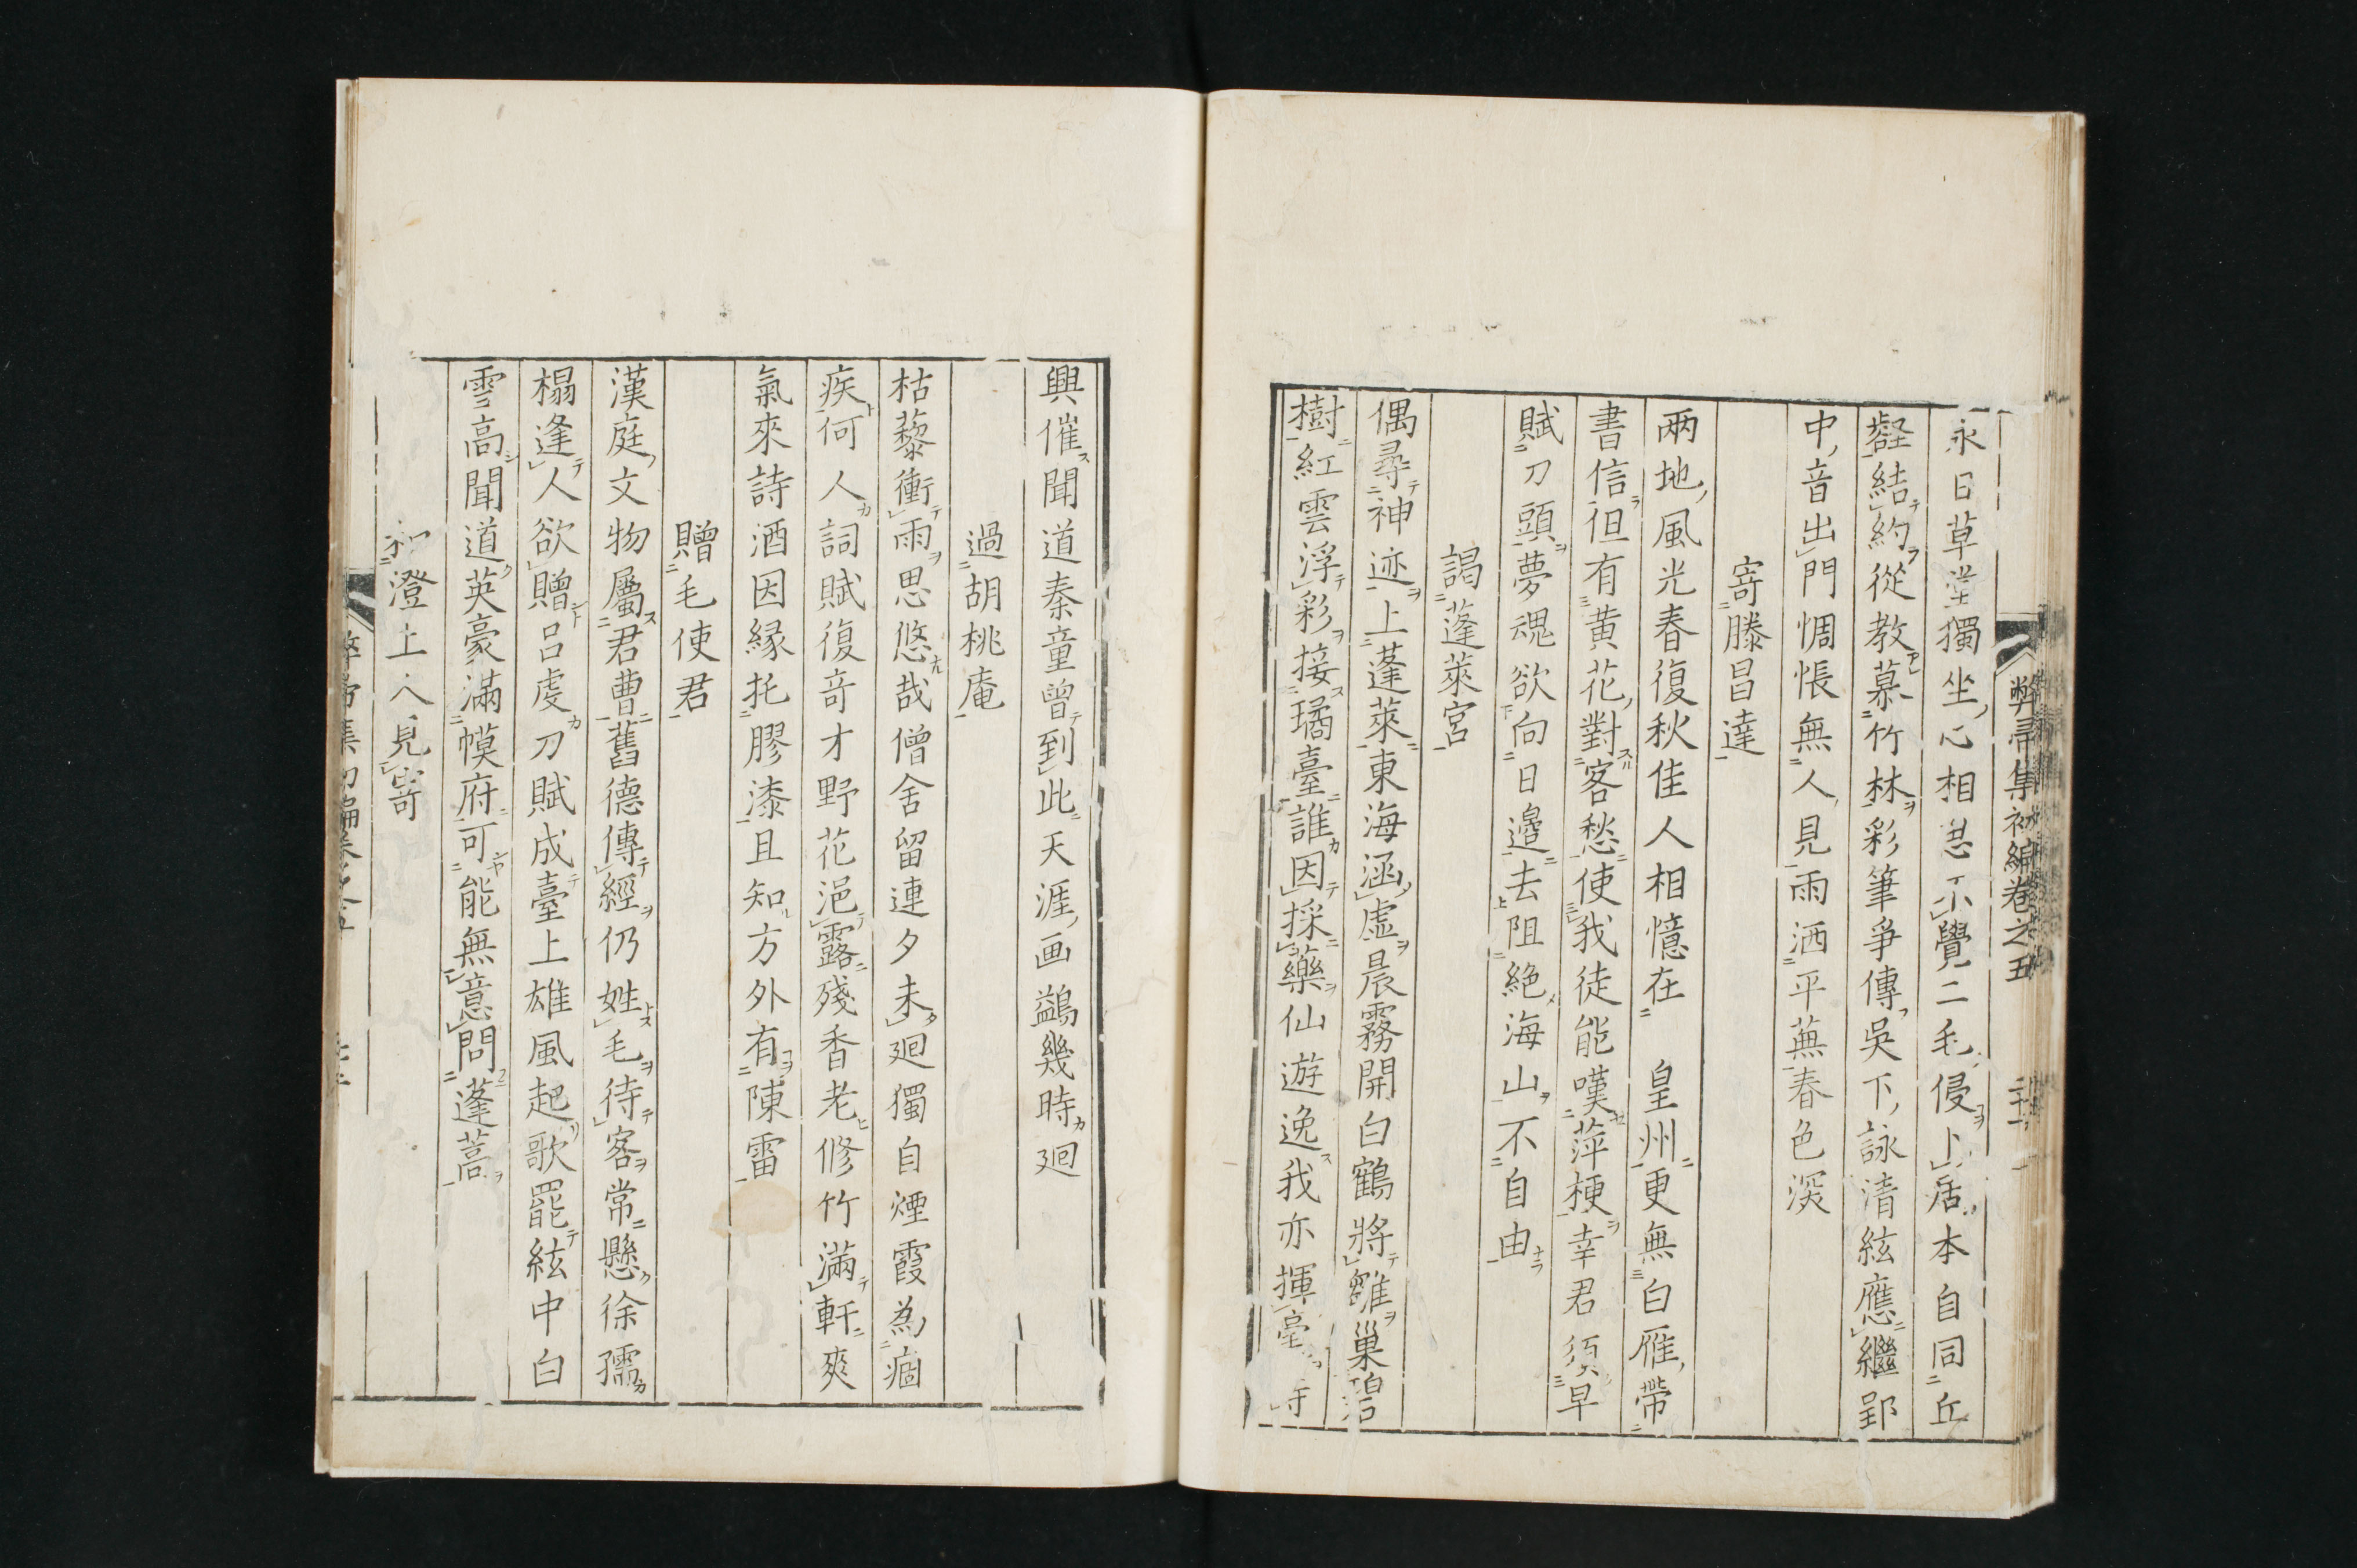 弊帚集初編卷之五
永日草堂獨坐心相思不覺二毛侵卜居本自同丘
壑結約從教慕竹林彩筆爭傳吳下詠清絃應繼郢
中音出門惆悵無人見雨洒平蕪春色深
寄滕昌達
兩地風光春復秋佳人相憶在 皇州更無白雁帶
書信但有黃花對客愁使我徒能嘆萍梗幸君須早
賦刀頭夢魂欲向日邊去阻絕海山不自由
謁蓬萊宮
偶尋神迹上蓬萊東海涵虛晨霧開白鶴將雛巢碧
樹紅雲浮彩接璚臺誰因採藥仙遊逸我亦揮毫
興催聞道秦童曾到此天涯画鷁幾時廻
過胡桃庵
枯藜衝雨思悠哉僧舍留連夕未廻獨自煙霞為痼
疾何人詞賦復奇才野花浥露殘香老修竹滿軒爽
氣來詩酒因緣托膠漆且知方外有陳雷
贈毛使君
漢庭文物屬君曹舊德傳經仍姓毛待客常懸徐孺
榻逢人欲贈呂虔刀賦成臺上雄風起歌罷絃中白
雪高聞道英豪滿幕府可能無意問蓬蒿
和澄上人見寄
弊帚集初編卷之五